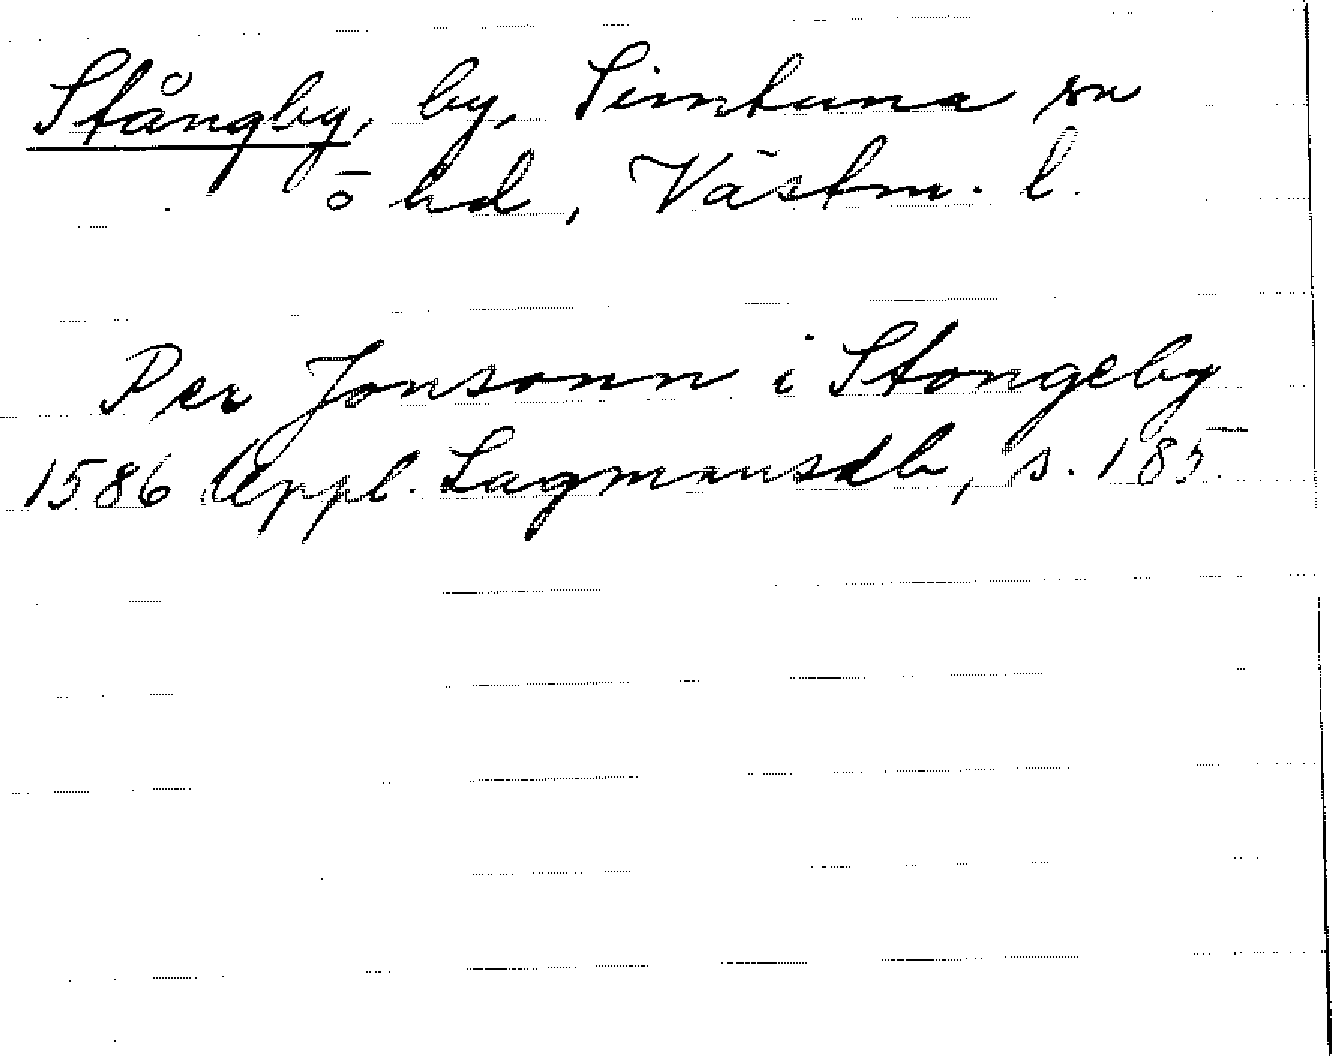 Stångby, by, Simtuna sn
o hd, Västm. l.
Per Jonsonn i Stongeby
1586 Uppl. Lagmansdb, s. 185.